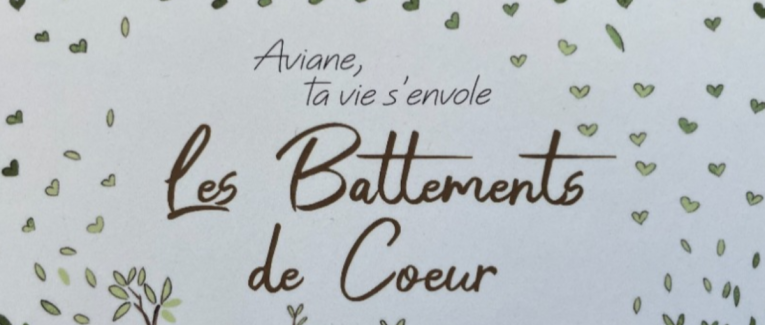 Aviane,
ta vie s'envole
Les Battements
de Coeur